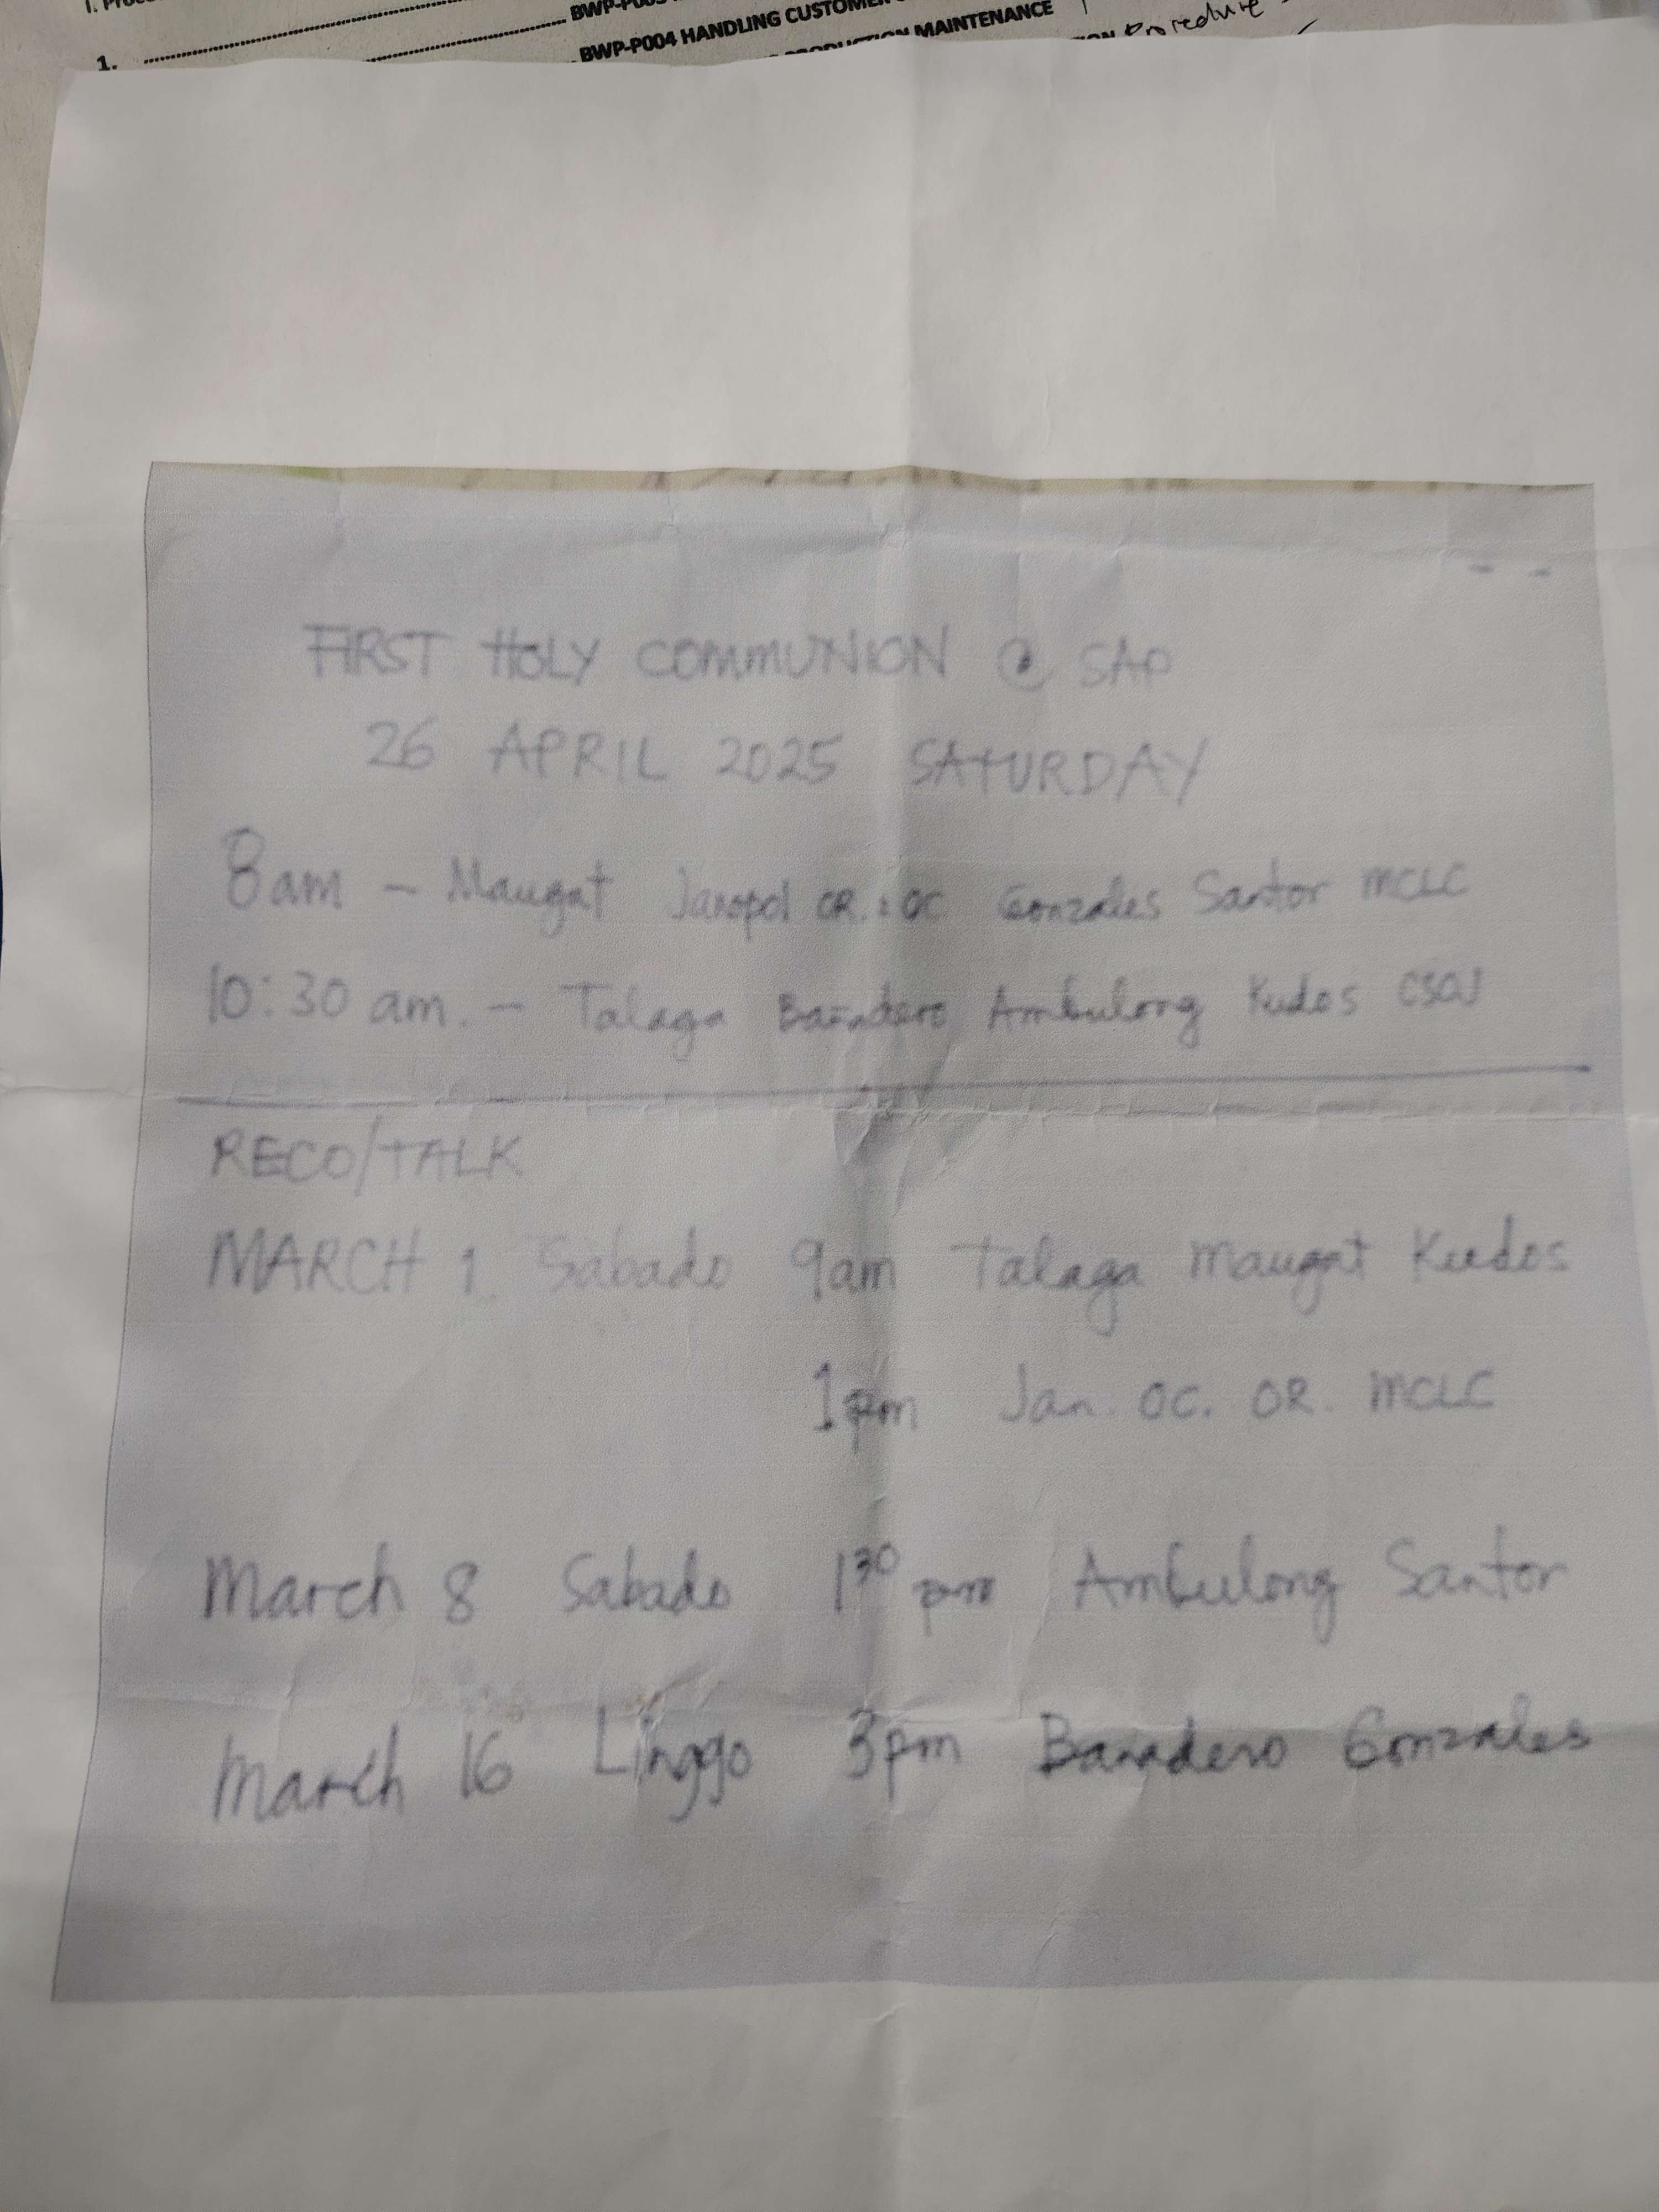 I.
BWP-P004 HANDLING CUSTOMER
1.
PRODUCTION MAINTENANCE
Procedure
FIRST HOLY COMMUNION @ SAP
26 APRIL 2025 SATURDAY
8am - Maugat Janopol OR. OC Gonzales Santor MCLC
10:30 am. - Talaga Banadero Ambulong Kudos CSQJ
RECO/TALK
MARCH 1 Sabado 9am Talaga Maugat Kudos
1pm Jan. OC. OR. MCLC
March 8 Sabado 130 pm Ambulong Santor
March 16 Linggo 3pm Banadero Gonzales